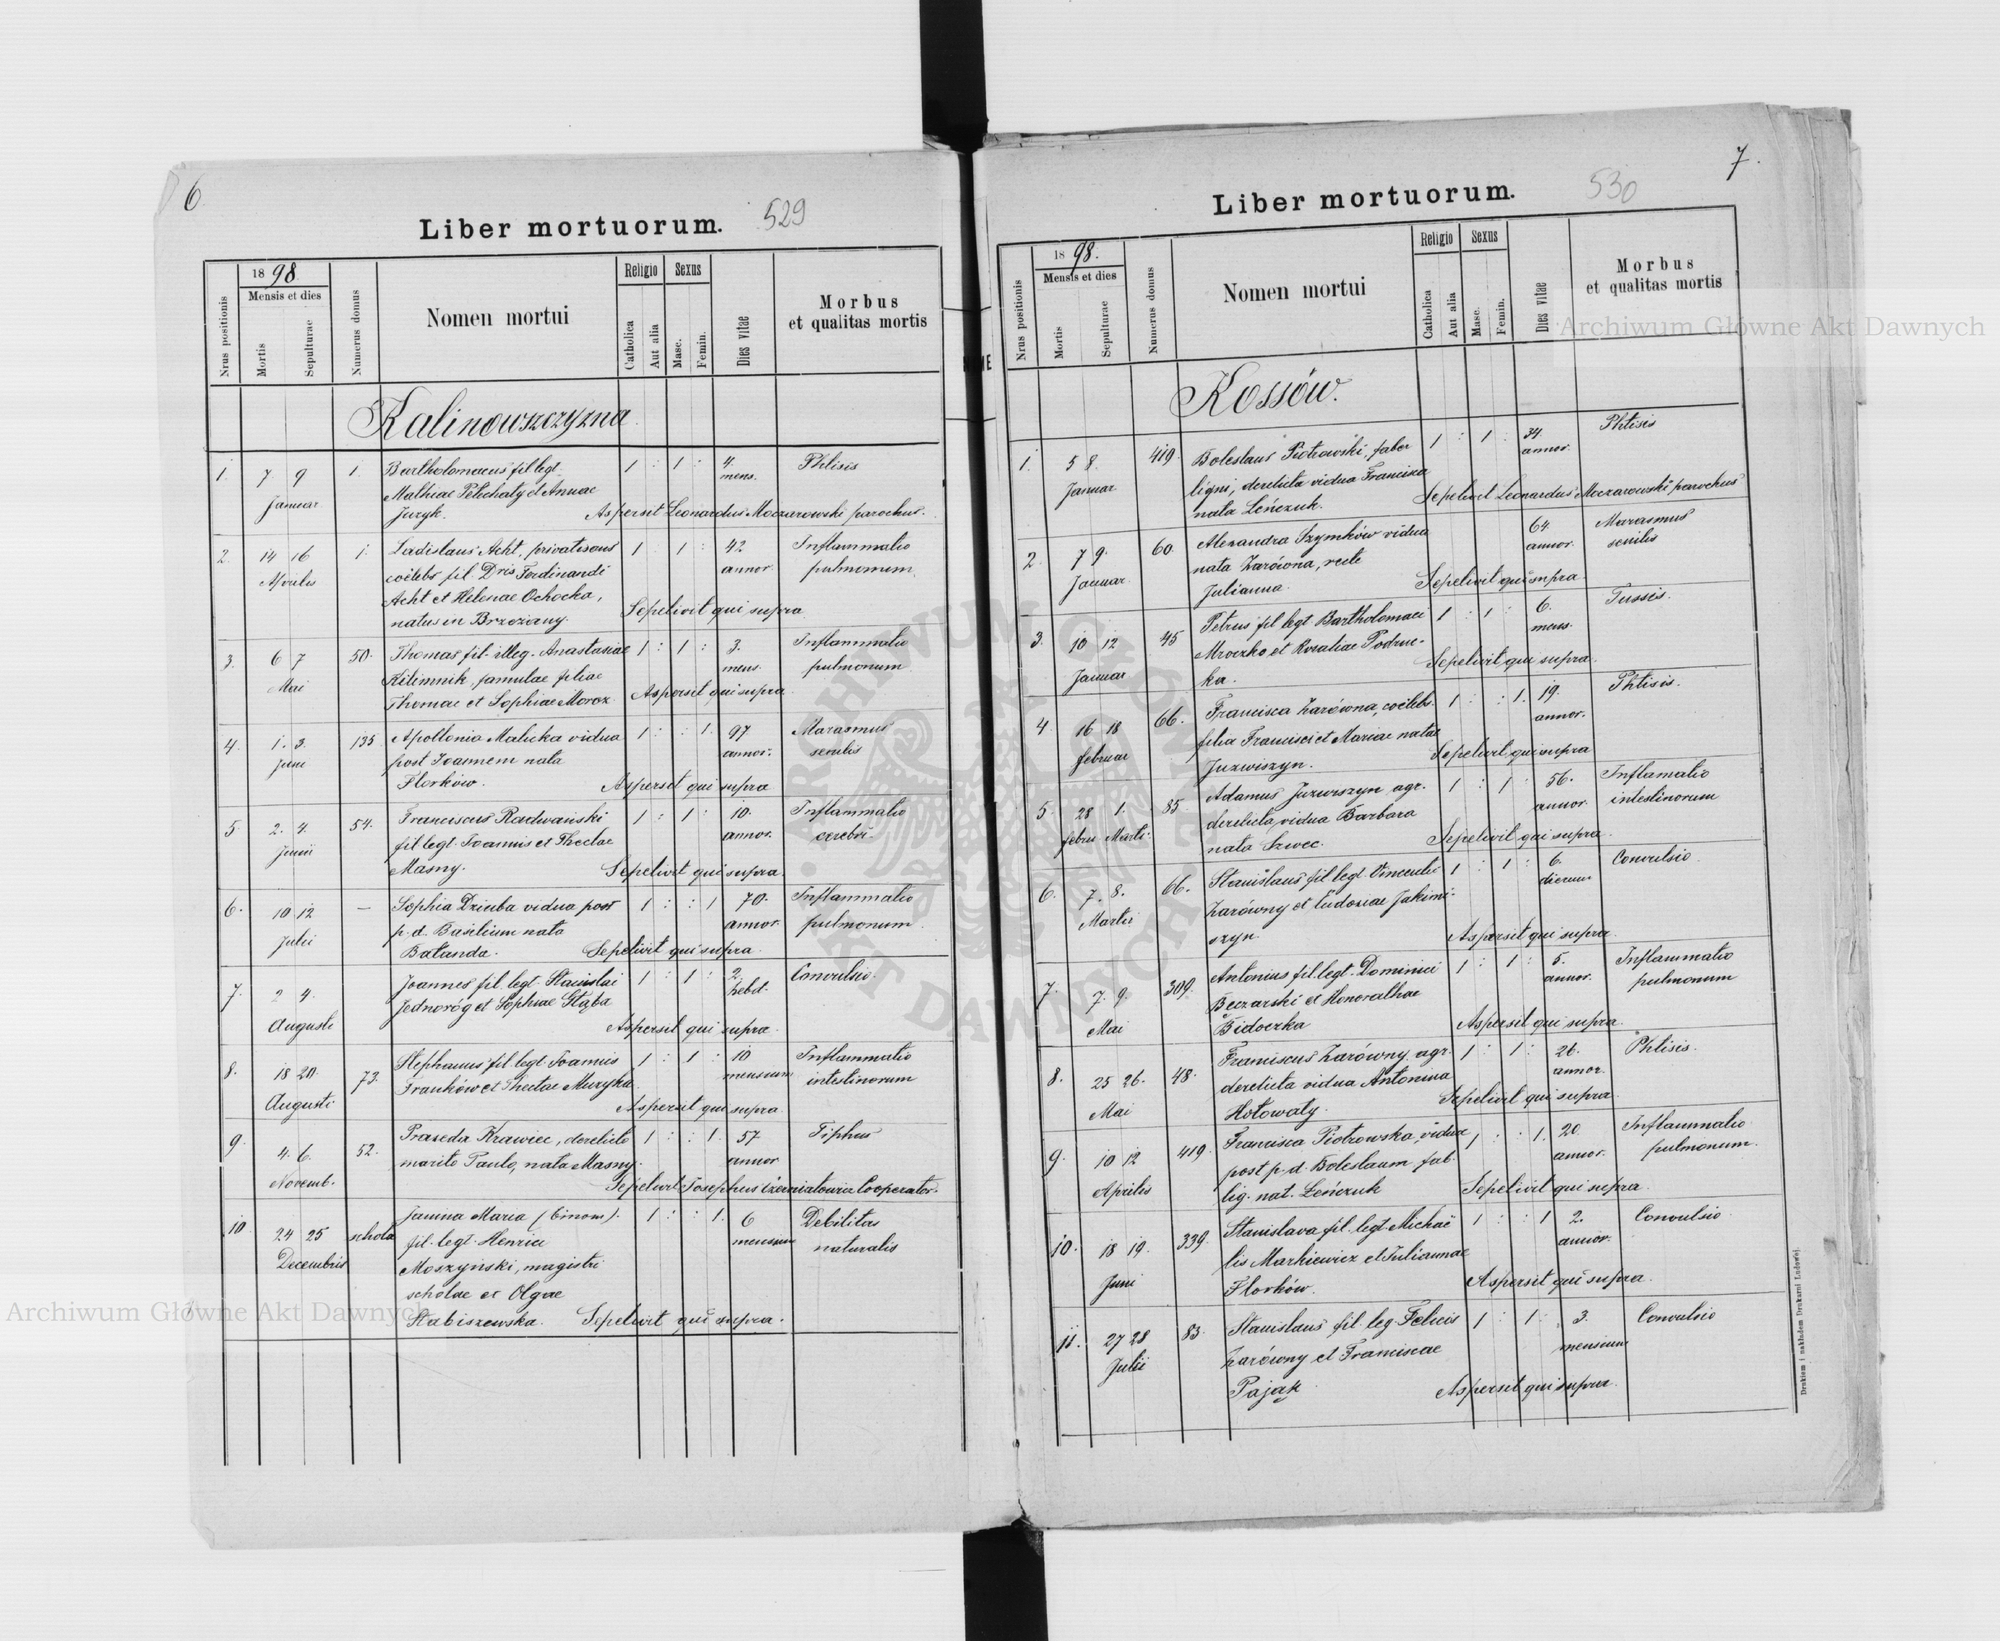 6
Liber mortuorum. 529
Nrus positionis
1898
Mensis et dies
Mortis
Sepulturae
Numerus domus
Nomen mortui
Religio
Catholica
Aut alia
Sexus
Masc.
Femin.
Dies vitae
Morbus
et qualitas mortis
Kalinowszczyzna
1. 7 9 1. Bartholomaeus fil legt. 1 : 1 : 4. Phtisis
mens.
Januar Mathiae Petechaty et Annae
Juzyk. Aspersit Leonardus Moczarowski parochus.
2. 14 16 1. Ladislaus Acht, privatisans 1 1 : 42 Inflammatio
Aprilis coelebs fil. Dris Ferdinandi annor. pulmonum.
Acht et Helenae Ochocka,
natus in Brzeziany. Sepelivit qui supra
3. 6 7 50. Thomas fil. illeg. Anastasiae 1 : 1 : 3. Inflammatio
Mai Kilimnik, famulae filiae mens. pulmonum
Thomae et Sophiae Moroz Aspersit qui supra
4. 1. 3. 135 Apollonia Malicka vidua 1 : : 1. 97 Marasmus
Juni post Joannem nata annor. senilis
Florków. Aspersit qui supra
5. 2. 4. 54. Franciscus Radwański 1 : 1 : 10. Inflammatio
Junii fil legt. Joannis et Theclae annor. cerebri.
Masny. Sepelivit qui supra.
6. 10 12 — Sophia Dziuba vidua post 1 : : 1 70. Inflammatio
Julii p. d. Basilium nata annor. pulmonum.
Batanda. Sepelivit qui supra.
7. 2 4. Joannes fil. legt. Stanislai 1 : 1 : 2. Convulsio.
Augusti Jednoróg et Sophiae Stąba hebd.
Aspersit qui supra
8. 18 20. 73. Stephanus fil legt Joannis 1 : 1 : 10 Inflammatio
Augusti Franków et Theclae Muzyka mensium intestinorum
Aspersit qui supra.
9 4. 6. 52. Praxeda Krawiec, derelicto 1 : : 1. 57 Tiphus
Novemb. marito Paulo, nata Masny. annor
Sepelivit Josephus Czerniatowicz Cooperator.
10. 24 25 schola Janina Maria (binom). 1 : : 1. 6 Debilitas
Decembris fil. legt. Henrici mensium naturalis
Moszyński, magistri
scholae et Olgae
Stabiszewska. Sepelivit qui supra.
7.
Liber mortuorum. 530
Nrus positionis
1898.
Mensis et dies
Mortis
Sepulturae
Numerus domus
Nomen mortui
Religio
Catholica
Aut alia
Sexus
Masc.
Femin.
Dies vitae
Morbus
et qualitas mortis
Kossów.
1. 5 8. 419. Boleslaus Piotrowski, faber 1 : 1 : 34. Phtisis
annor.
Januar ligni, derelicta vidua Francisca
nata Leńczuk. Sepelivit Leonardus Moczarowski parochus
2. 7 9. 60. Alexandra Szymków vidua 64. Marasmus
Januar nata Zarówna, recte annor. senilis
Julianna. Sepelivit qui supra
3. 10 12 45 Petrus fil legt Bartholomaei 1 : 1 : 6. Tussis.
Januar Mroczko et Rosaliae Podruc- mens.
ka. Sepelivit qui supra.
4. 16 18 66. Francisca Zarówna, coelebs. 1 : : 1. 19. Phtisis.
februar filia Francisci et Mariae natae annor.
Juzwiszyn. Sepelivit qui supra
5. 28 1. 85. Adamus Juzwiszyn agr. 1 : 1 : 56. Inflamatio
febru Marti. derelicta vidua Barbara annor. intestinorum
nata Szwec. Sepelivit qui supra.
6. 7. 8. 66. Stanislaus fil legt Vincentii 1 : 1 : 6. Convulsio.
Martii Zarówny et Eudoxiae Jakimi- dierum
szyn. Aspersit qui supra.
7. 7. 9. 309. Antonius fil. legt. Dominici 1 : 1 : 5. Inflammatio
Mai Beczarski et Honorathae annor. pulmonum
Bidoczka Aspersit qui supra.
8. 25 26. 48. Franciscus Zarówny agr. 1 : 1 : 26. Phtisis.
Mai derelicta vidua Antonina annor.
Hołowaty. Sepelivit qui supra.
9. 10 12 419. Francisca Piotrowska, vidua 1 : : 1. 20. Inflammatio
Aprilis post p. d. Boleslaum fab. annor. pulmonum.
lig. nat. Leńczuk Sepelivit qui supra.
10. 18 19. 339. Stanislava fil. legt Michaë 1 : : 1 2. Convulsio
Juni lis Markiewicz et Juliannae annor.
Florków. Aspersit qui supra.
11. 27 28 83. Stanislaus fil. leg. Felicis 1 : 1 : 3. Convulsio
Julii Zarówny et Franciscae mensium
Pająk Aspersit qui supra.
Drukiem i nakładem Drukarni Ludowej.
Archiwum Główne Akt Dawnych
Archiwum Główne Akt Dawnych
ARCHIWUM GŁÓWNE AKT DAWNYCH